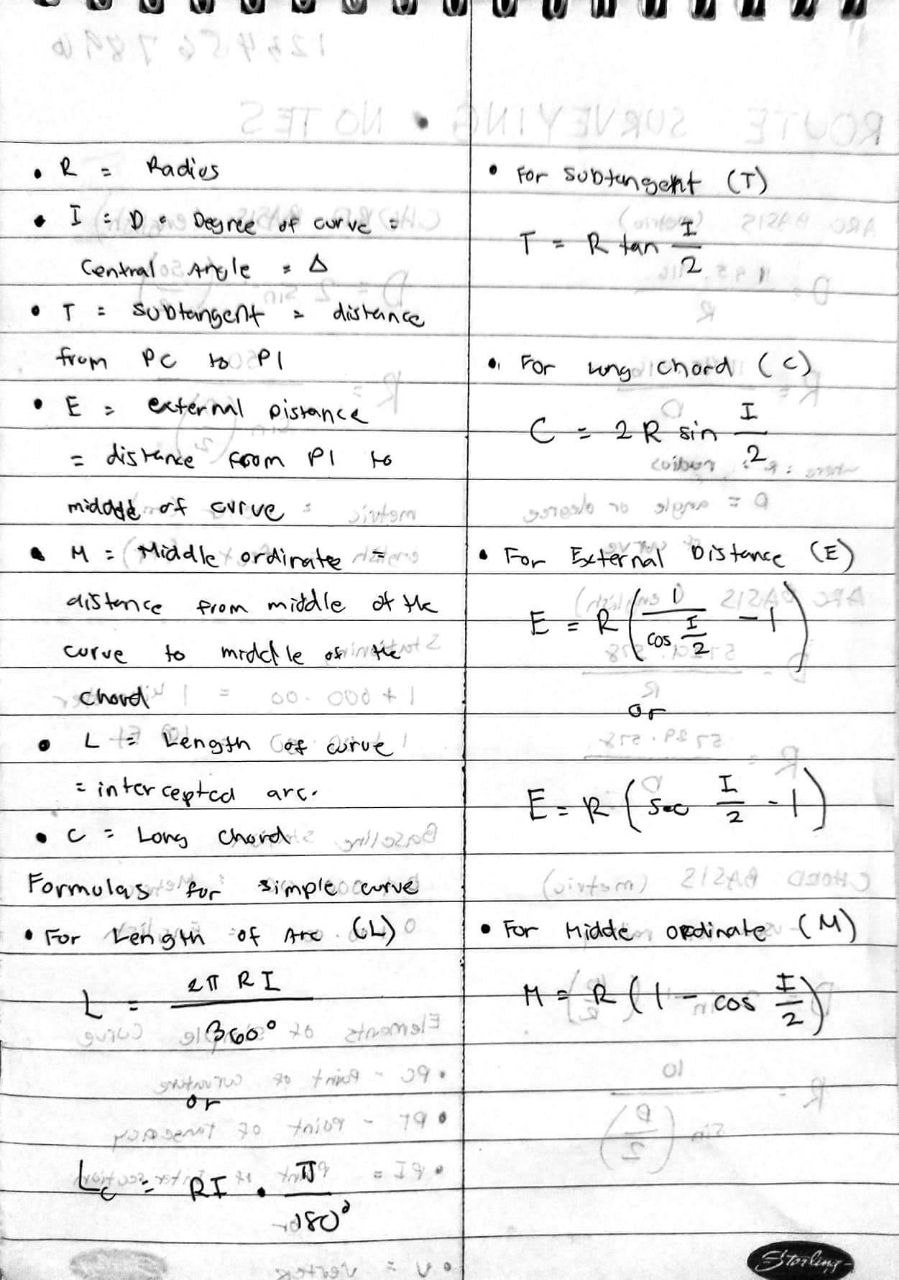 • R = Radius
• I = D = Degree of curve =
Central Angle = Δ
• T = subtangent = distance
from PC to PI
• E = external Distance
= distance from PI to
middle of curve
• M = Middle ordinate =
distance from middle of the
curve to middle of the
chord
• L = Length of curve
= intercepted arc.
• C = Long Chord
Formulas for simple curve
• For Length of Arc (L)
L = 2π RI / 360°
or
Lc = RI • π / 180°
• For Subtangent (T)
T = R tan I/2
• For Long chord (C)
C = 2 R sin I/2
• For External Distance (E)
E = R (1 / cos I/2 - 1)
or
E = R (sec I/2 - 1)
• For Midde ordinate (M)
M = R (1 - cos I/2)
Sterling